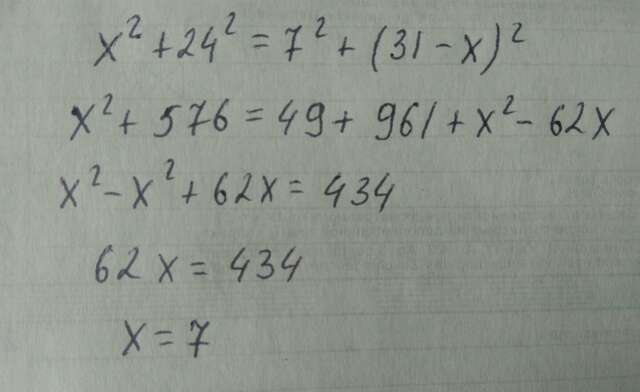 x² + 24² = 7² + (31 - x)²
x² + 576 = 49 + 961 + x² - 62x
x² - x² + 62x = 434
62x = 434
x = 7